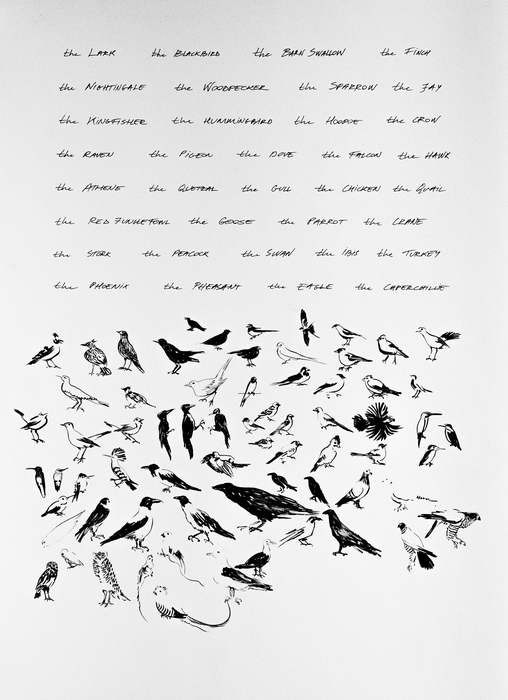 the LARK the BLACKBIRD the BARN SWALLOW the FINCH
the NIGHTINGALE the WOODPECKER the SPARROW the JAY
the KINGFISHER the HUMMINGBIRD the HOOPOE the CROW
the RAVEN the PIGEON the DOVE the FALCON the HAWK
the ATHENE the QUETZAL the GULL the CHICKEN the QUAIL
the RED JUNGLEFOWL the GOOSE the PARROT the CRANE
the STORK the PEACOCK the SWAN the IBIS the TURKEY
the PHOENIX the PHEASANT the EAGLE the CAPERCHILLIE